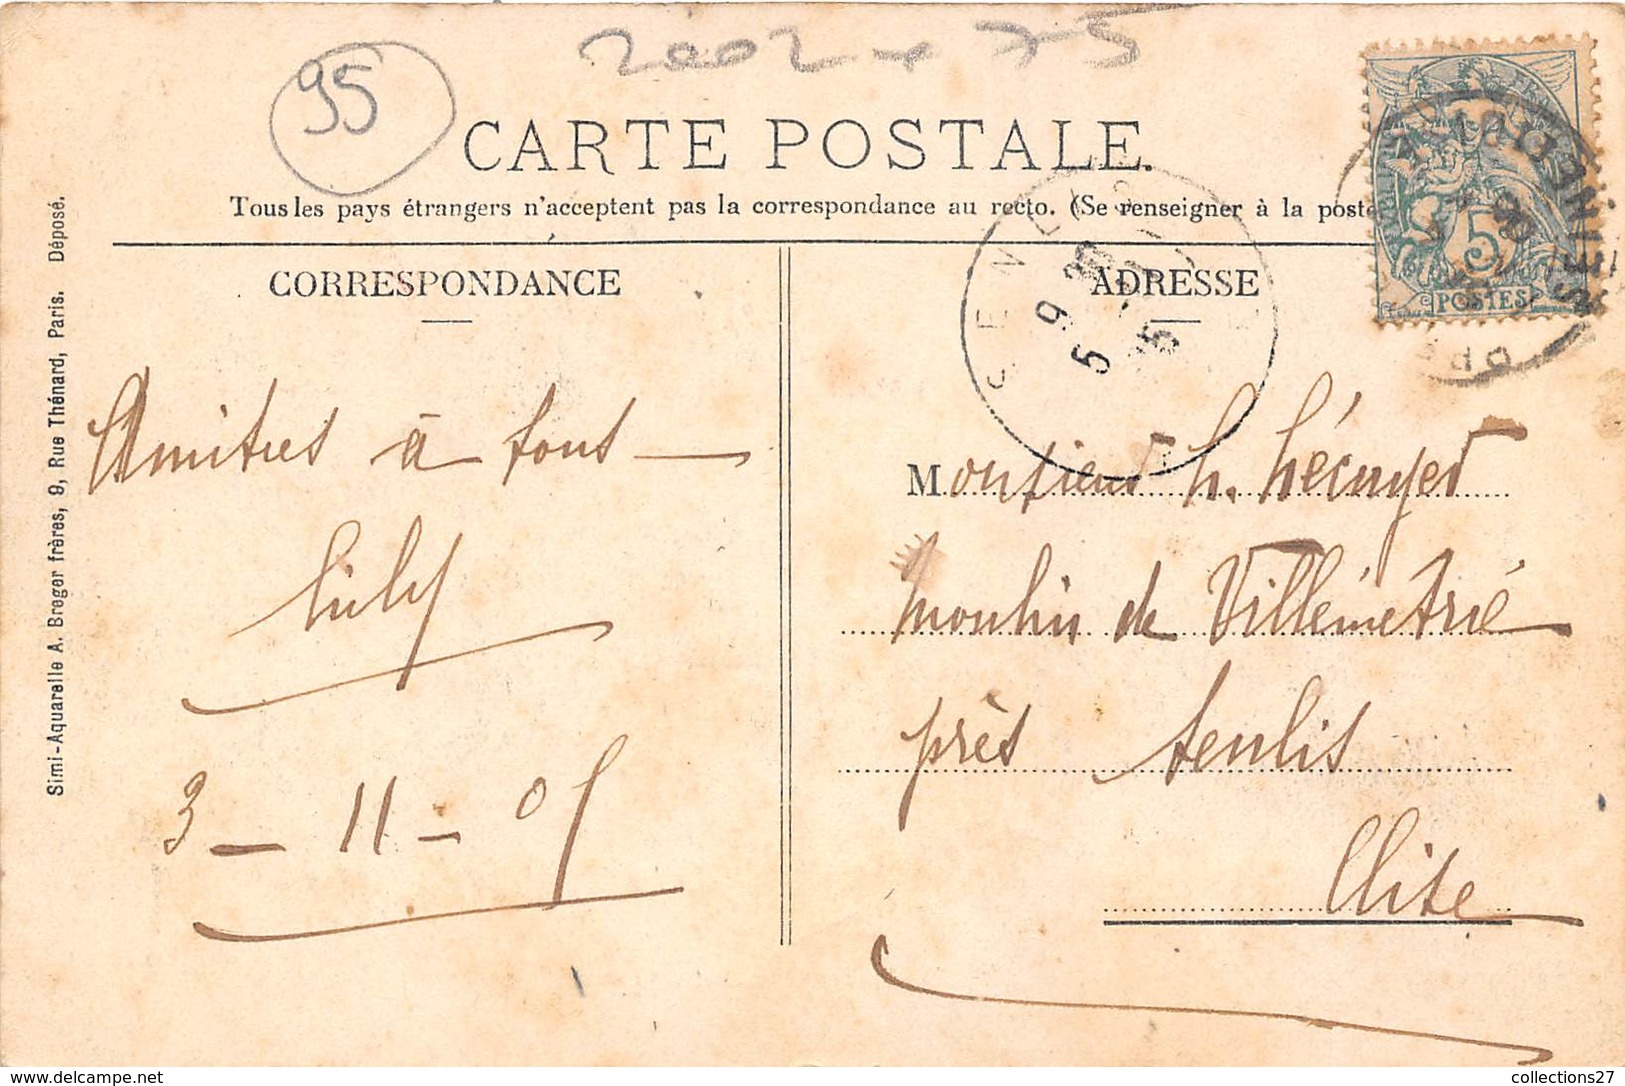 95
2002 - 75
CARTE POSTALE.
Tous les pays étrangers n'acceptent pas la correspondance au recto. (Se renseigner à la poste
CORRESPONDANCE
ADRESSE
5
POSTES
Simi-Aquarelle A. Breger frères, 9, Rue Thénard, Paris. Déposé.
Amitiés à tous
3 - 11 - 05
Monsieur h. Lécuyer
Moulin de Villémétrie
près Senlis
Oise
collections27